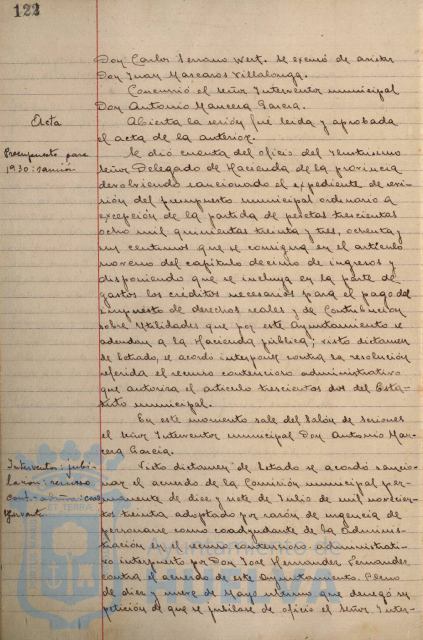 122
Don Carlos Serrano Wert. Se excusó de asistir
Don Juan Mascarós Villalonga.
Concurrió el señor Interventor municipal
Don Antonio Mancera García.
Acta
Abierta la sesión fué leida y aprobada
el acta de la anterior.
Presupuesto para
1930: sanción
Se dió cuenta del oficio del Ilustrisimo
señor Delegado de Hacienda de la provincia
devolviendo sancionado el expediente de revi-
sión del presupuesto municipal ordinario a
excepción de la partida de pesetas trescientas
ocho mil quinientas treinta y tres, ochenta y
un centimos que se consigna en el artículo
noveno del capítulo decimo de ingresos y
disponiendo que se incluya en la parte de
gastos los créditos necesarios para el pago del
impuesto de derechos reales y de Contribución
sobre Utilidades que por este Ayuntamiento se
adeudan a la Hacienda pública; visto dictamen
de Letrado, se acordó interponer contra la resolución
referida el recurso contencioso administrativo
que autoriza el artículo trescientos dos del Esta-
tuto municipal.
En este momento sale del Salón de sesiones
el señor Interventor municipal Don Antonio Man-
cera García.
Interventor: jubi-
lación: recurso
cont.-
Visto dictamen de Letrado se acordó sancio-
nar el acuerdo de la Comisión municipal per-
manente de diez y siete de Julio de mil novecien-
tos treinta adoptado por razón de urgencia de
personarse como coadyudante de la Adminis-
tración en el recurso contencioso administrati-
vo interpuesto por Don José Hernandez Fernandez
contra el acuerdo de este Ayuntamiento Pleno
de diez y nueve de Mayo ultimo que denegó su
petición de que se jubilase de oficio el señor Inter-
Ayuntamiento de